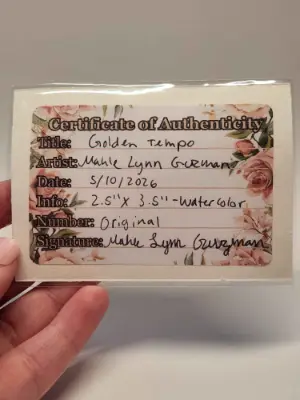 Certificate of Authenticity
Title: Golden Tempo
Artist: Mahle Lynn Guzman
Date: 5/10/2026
Info: 2.5" X 3.5" - Watercolor
Number: Original
Signature: Mahle Lynn Guzman